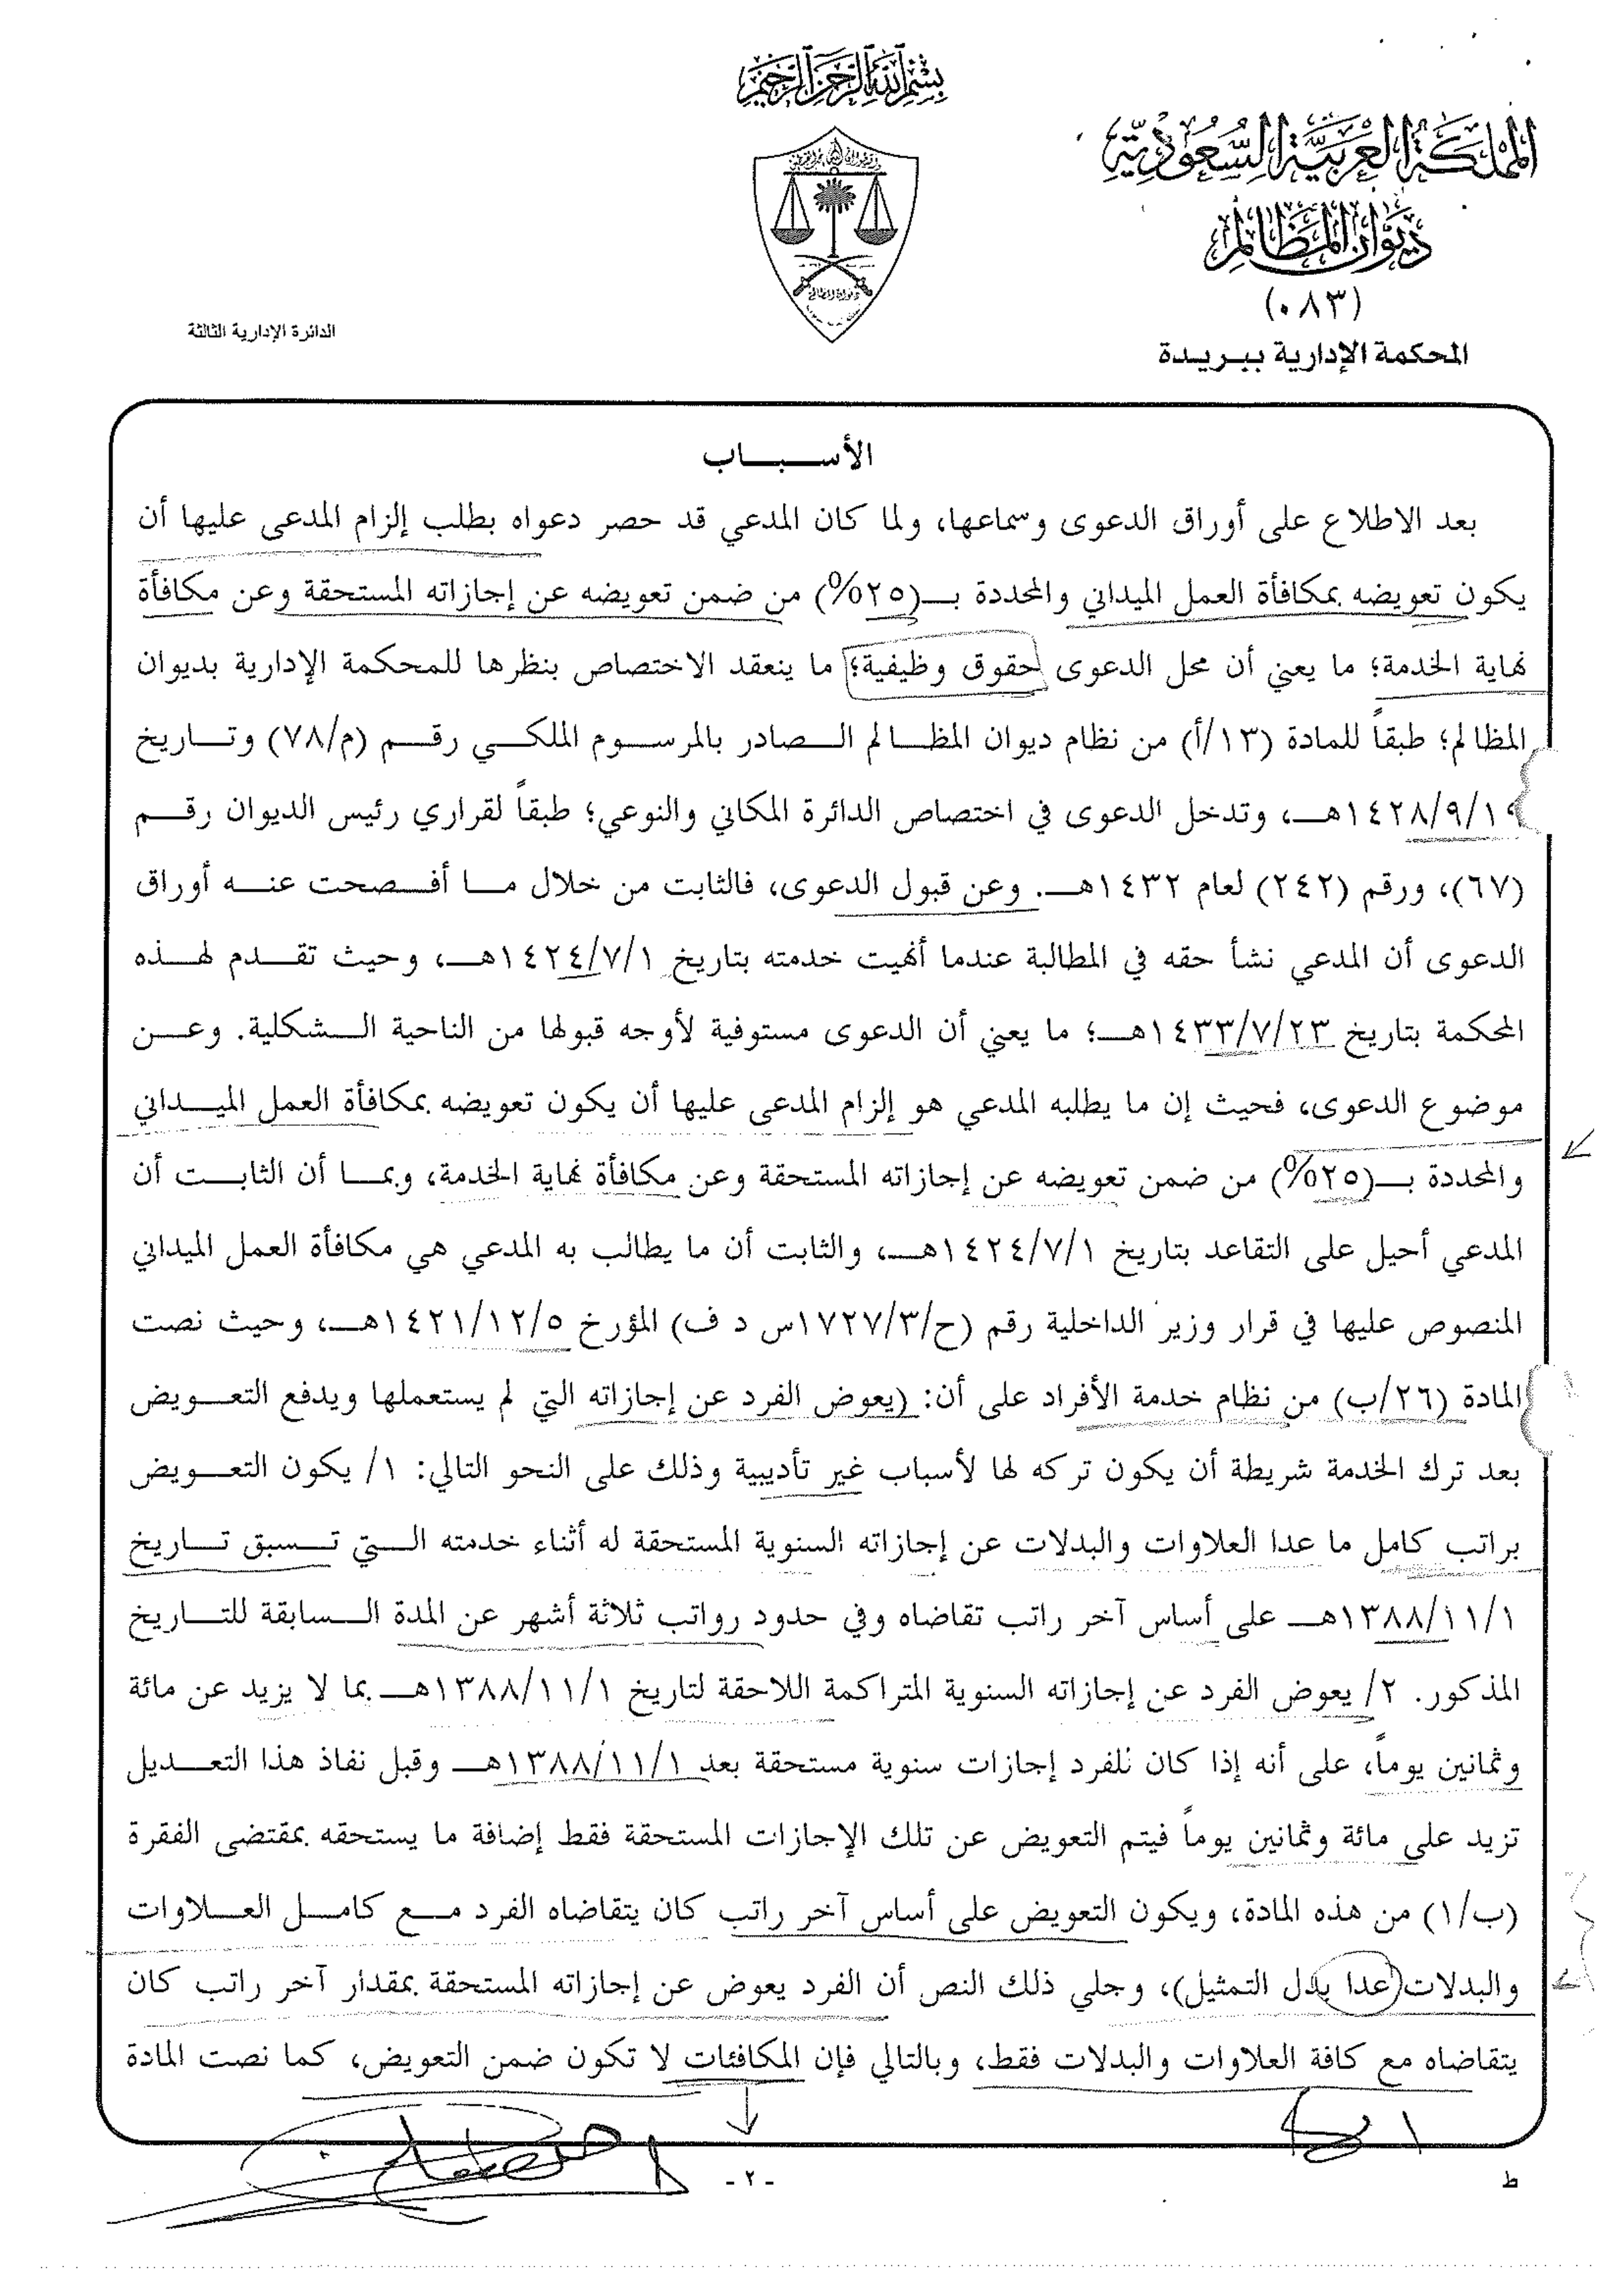 بسم الله الرحمن الرحيم
المملكة العربية السعودية
ديوان المظالم
(٠٨٣)
المحكمة الإدارية ببريدة
الدائرة الإدارية الثالثة
الأسباب
بعد الاطلاع على أوراق الدعوى وسماعها، ولما كان المدعي قد حصر دعواه بطلب إلزام المدعى عليها أن
يكون تعويضه بمكافأة العمل الميداني والمحددة بـ(٢٥%) من ضمن تعويضه عن إجازاته المستحقة وعن مكافأة
نهاية الخدمة؛ ما يعني أن محل الدعوى حقوق وظيفية؛ ما ينعقد الاختصاص بنظرها للمحكمة الإدارية بديوان
المظالم؛ طبقاً للمادة (١٣/أ) من نظام ديوان المظالم الصادر بالمرسوم الملكي رقم (م/٧٨) وتاريخ
١٤٢٨/٩/١٩هـ، وتدخل الدعوى في اختصاص الدائرة المكاني والنوعي؛ طبقاً لقراري رئيس الديوان رقم
(٦٧)، ورقم (٢٤٢) لعام ١٤٣٢هـ. وعن قبول الدعوى، فالثابت من خلال ما أفصحت عنه أوراق
الدعوى أن المدعي نشأ حقه في المطالبة عندما أنهيت خدمته بتاريخ ١٤٢٤/٧/١هـ، وحيث تقدم لهذه
المحكمة بتاريخ ١٤٣٣/٧/٢٣هـ؛ ما يعني أن الدعوى مستوفية لأوجه قبولها من الناحية الشكلية. وعن
موضوع الدعوى، فحيث إن ما يطلبه المدعي هو إلزام المدعى عليها أن يكون تعويضه بمكافأة العمل الميداني
والمحددة بـ(٢٥%) من ضمن تعويضه عن إجازاته المستحقة وعن مكافأة نهاية الخدمة، وبما أن الثابت أن
المدعي أحيل على التقاعد بتاريخ ١٤٢٤/٧/١هـ، والثابت أن ما يطالب به المدعي هي مكافأة العمل الميداني
المنصوص عليها في قرار وزير الداخلية رقم (ح/١٧٢٧/٣س د ف) المؤرخ ١٤٢١/١٢/٥هـ، وحيث نصت
المادة (٢٦/ب) من نظام خدمة الأفراد على أن: (يعوض الفرد عن إجازاته التي لم يستعملها ويدفع التعويض
بعد ترك الخدمة شريطة أن يكون تركه لها لأسباب غير تأديبية وذلك على النحو التالي: ١/ يكون التعويض
براتب كامل ما عدا العلاوات والبدلات عن إجازاته السنوية المستحقة له أثناء خدمته التي تسبق تاريخ
١٣٨٨/١١/١هـ على أساس آخر راتب تقاضاه وفي حدود رواتب ثلاثة أشهر عن المدة السابقة للتاريخ
المذكور. ٢/ يعوض الفرد عن إجازاته السنوية المتراكمة اللاحقة لتاريخ ١٣٨٨/١١/١هـ بما لا يزيد عن مائة
وثمانين يوماً، على أنه إذا كان للفرد إجازات سنوية مستحقة بعد ١٣٨٨/١١/١هـ وقبل نفاذ هذا التعديل
تزيد على مائة وثمانين يوماً فيتم التعويض عن تلك الإجازات المستحقة فقط إضافة ما يستحقه بمقتضى الفقرة
(ب/١) من هذه المادة، ويكون التعويض على أساس آخر راتب كان يتقاضاه الفرد مع كامل العلاوات
والبدلات(عدا بدل التمثيل)، وجلي ذلك النص أن الفرد يعوض عن إجازاته المستحقة بمقدار آخر راتب كان
يتقاضاه مع كافة العلاوات والبدلات فقط، وبالتالي فإن المكافئات لا تكون ضمن التعويض، كما نصت المادة
ط
-٢-